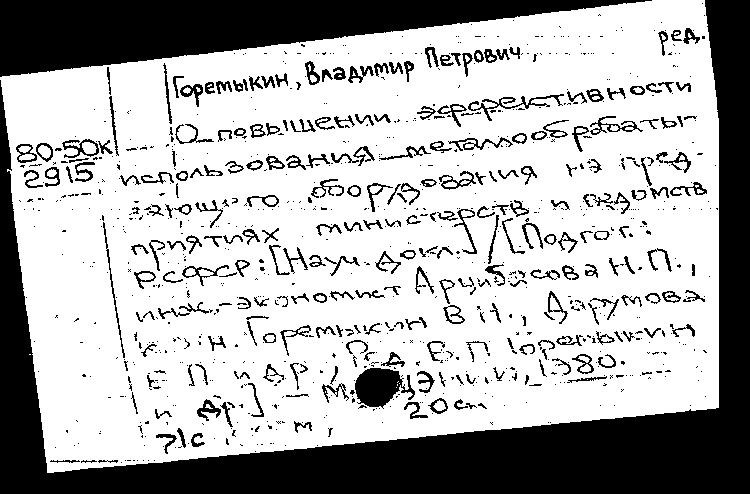 Горемыкин, Владимир Петрович, ред.
80-50к
2915
О повышении эффективности
использования металлообрабаты-
вающего оборудования на пред-
приятиях министерств и ведомств
РСФСР: [Науч. докл.] / [Подгот.:
инж.-экономист Арцибасова Н.П.,
к.э.н. Горемыкин В.Н., Дарумова
Е П и др.; Ред. В.П. Горемыкин
и др.]. - М. 1980.
71с 20 см